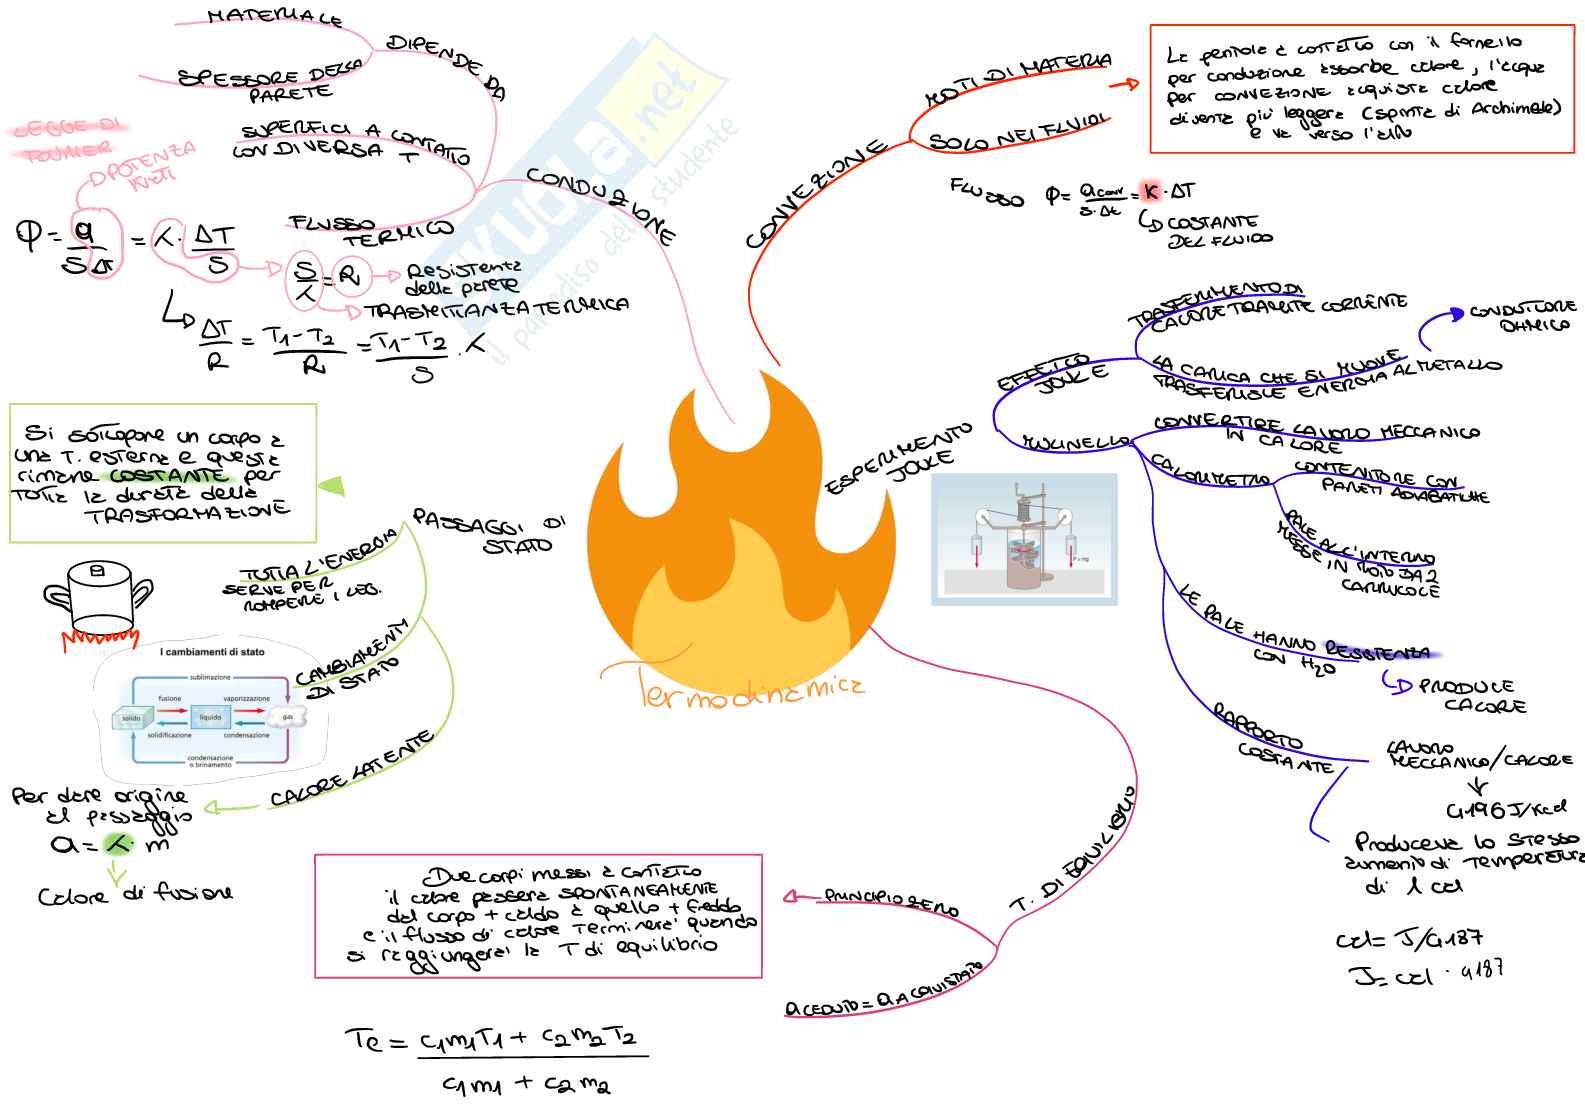 MATERIALE
DIPENDE DA
SPESSORE DELLA
PARETE
SUPERFICI A CONTATTO
CON DIVERSA T
LEGGE DI
FOURIER
POTENZA
FLUSSO
TERMICO
CONDUZIONE
Φ = Q / SΔt = λ · ΔT / S
S / λ = R
Resistenza
della parete
TRASMITTANZA TERMICA
ΔT / R = T1 - T2 / R = T1 - T2 / S · λ
SKUOLA.net
il paradiso dello studente
CONVEZIONE
MOTI DI MATERIA
SOLO NEI FLUIDI
La pentola a contatto con il fornello
per conduzione assorbe calore, l'acqua
per CONVEZIONE acquista calore
diventa più leggera (spinta di Archimede)
e va verso l'alto
FLUSSO Φ = Qconv / S·Δt = K · ΔT
COSTANTE
DEL FLUIDO
ESPERIMENTO
JOULE
EFFETTO
JOULE
TRASFERIMENTO DI
CALORE TRAMITE CORRENTE
LA CARICA CHE SI MUOVE
TRASFERISCE ENERGIA AL METALLO
CONDUTTORE
OHMICO
MULINELLO
CONVERTIRE LAVORO MECCANICO
IN CALORE
CALORIMETRO
CONTENITORE CON
PARETI ADIABATICHE
PALE ALL'INTERNO
MESSE IN MOTO DA 2
CARRUCOLE
LE PALE HANNO RESISTENZA
CON H2O
PRODUCE
CALORE
RAPPORTO
COSTANTE
LAVORO
MECCANICO/CALORE
4196 J/Kcal
Produceva lo stesso
aumento di temperatura
di 1 cal
cal = J/4187
J = cal · 4187
Si sottopone un corpo a
una T. esterna e questa
rimane COSTANTE per
tutta la durata della
TRASFORMAZIONE
PASSAGGI DI
STATO
TUTTA L'ENERGIA
SERVE PER
ROMPERE I LEG.
CAMBIAMENTI
DI STATO
I cambiamenti di stato
sublimazione
fusione
vaporizzazione
solido
liquido
gas
solidificazione
condensazione
condensazione
o brinamento
CALORE LATENTE
Per dare origine
al passaggio
Q = λ · m
Calore di fusione
Termodinamica
T. DI EQUILIBRIO
PRINCIPIO ZERO
Due corpi messi a contatto
il calore passerà SPONTANEAMENTE
dal corpo + caldo a quello + freddo
e il flusso di calore terminerà quando
si raggiungerà la T di equilibrio
Q CEDUTO = Q ACQUISTATO
Te = c1m1T1 + c2m2T2
c1m1 + c2m2